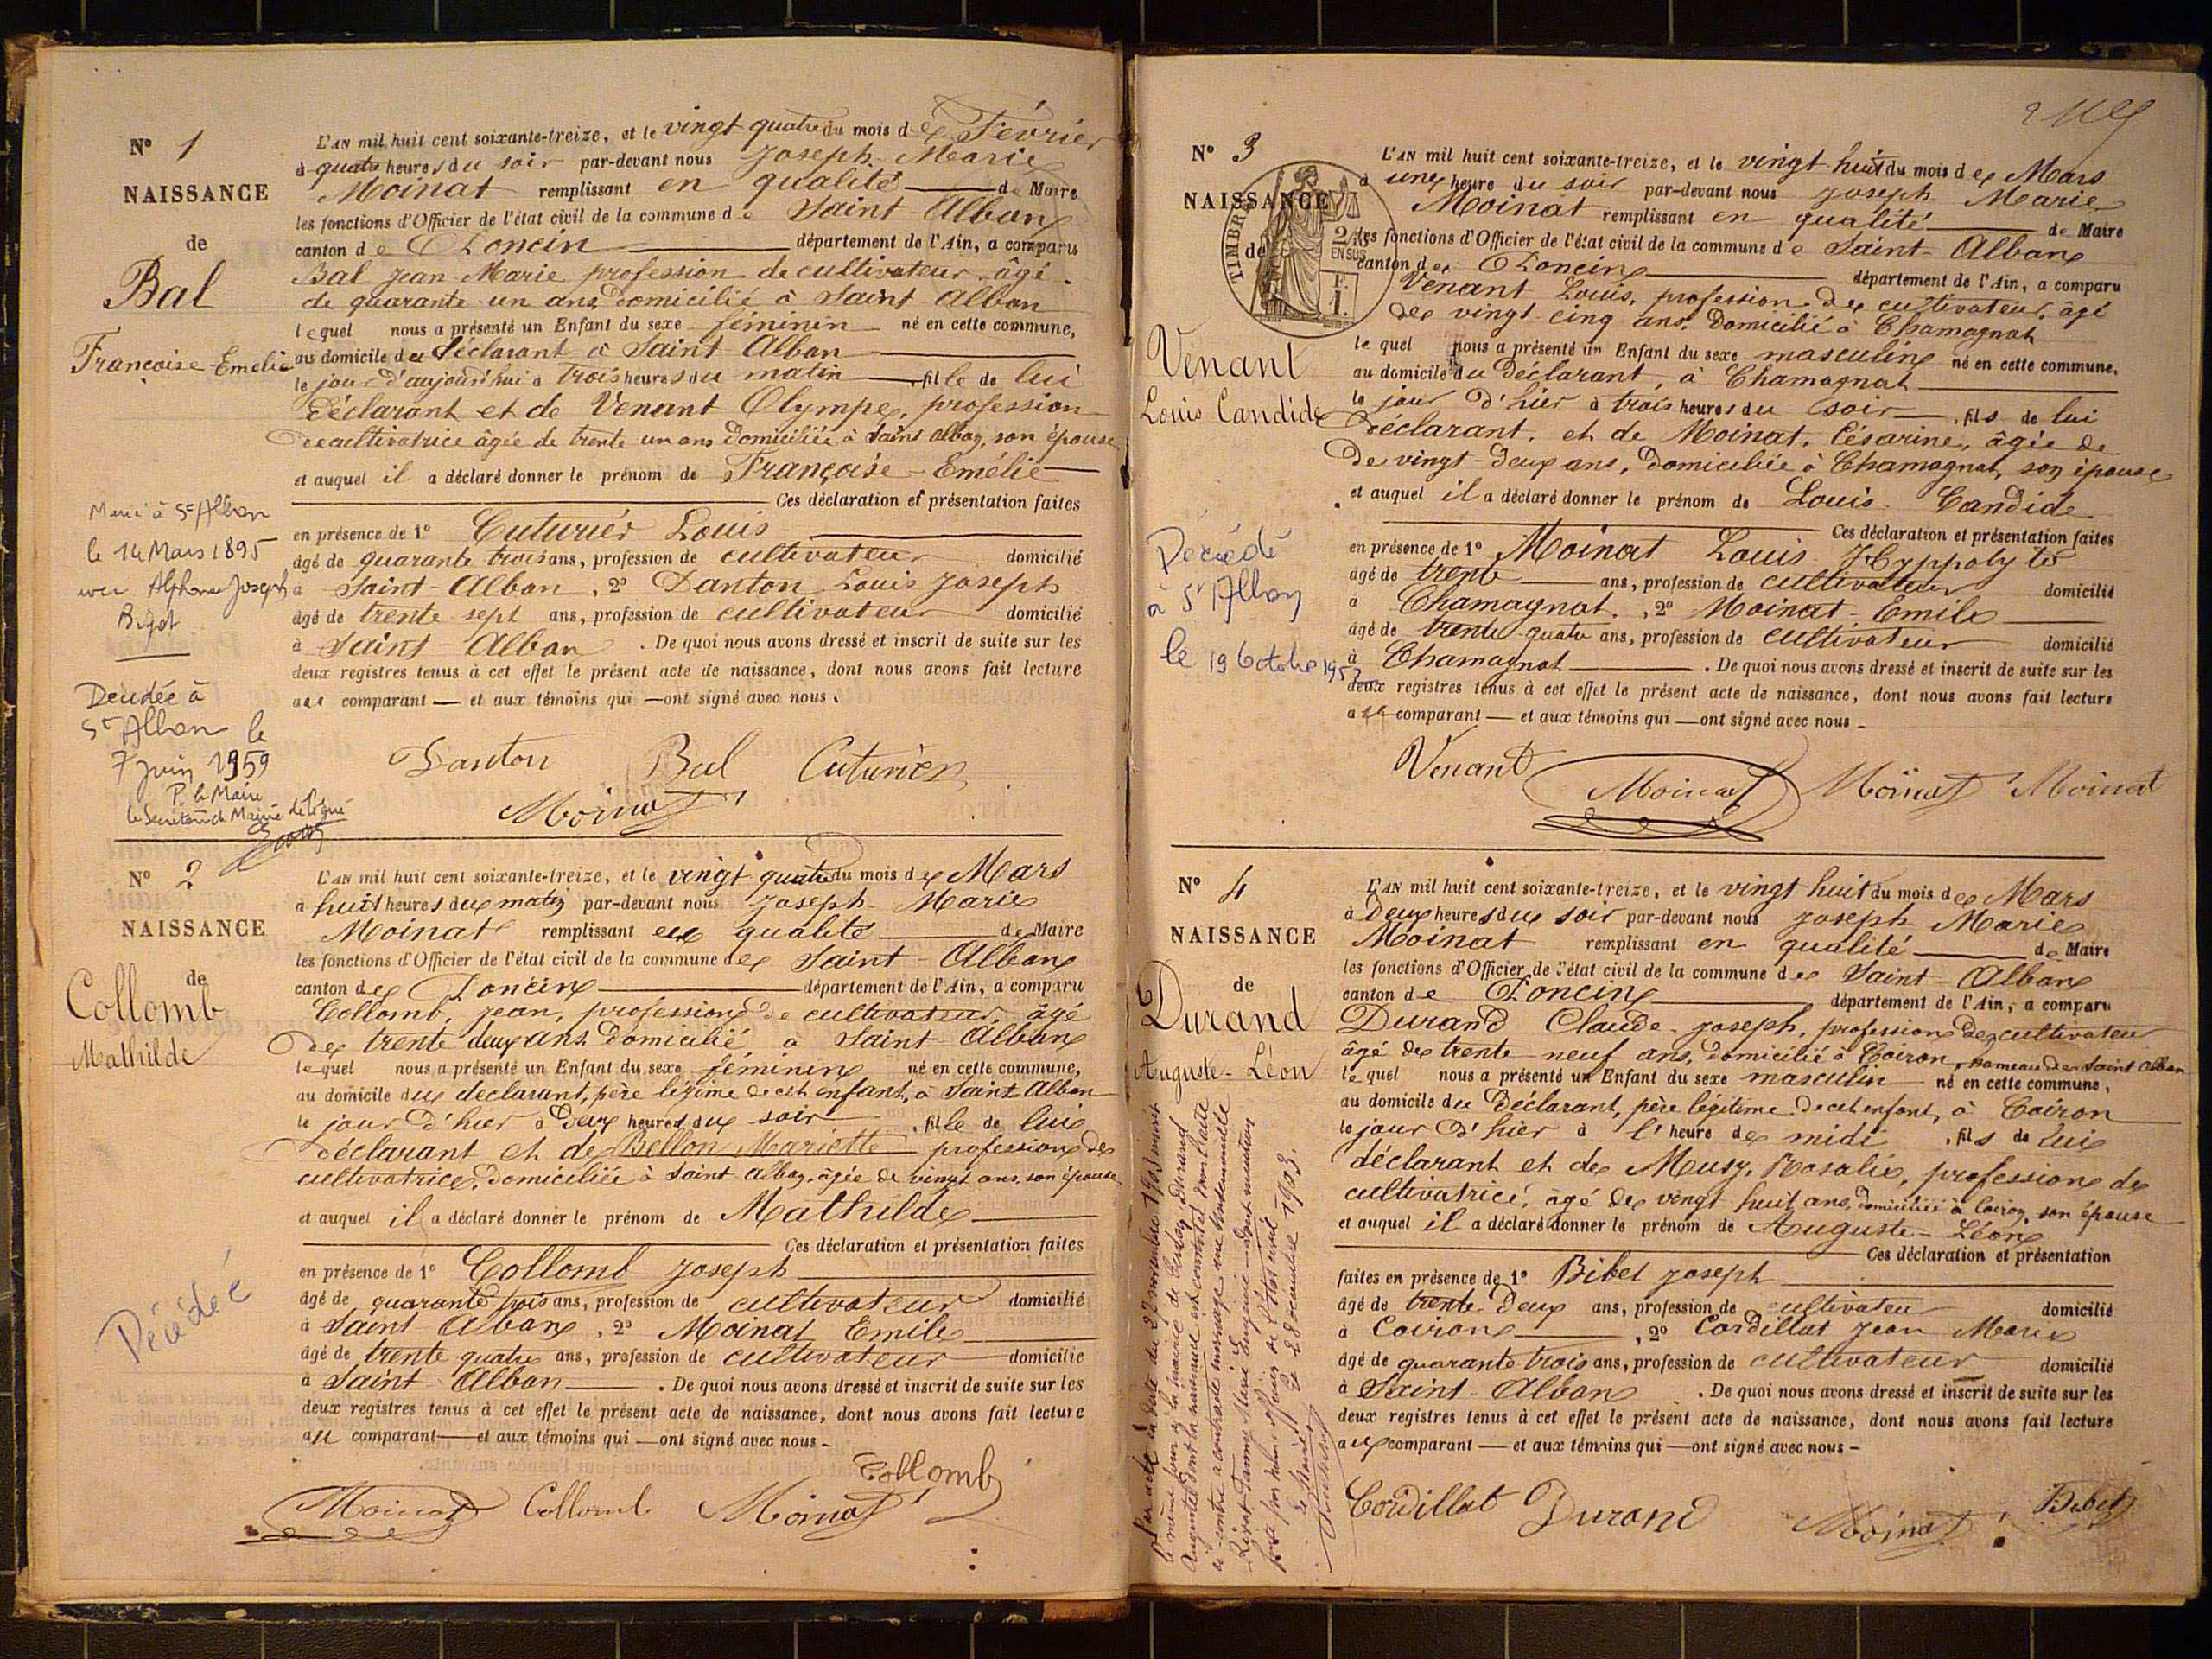 N° 1
NAISSANCE
de
Bal
Françoise-Emélie
L'AN mil huit cent soixante-treize, et le vingt quatre du mois de Février
à quatre heures du soir par-devant nous Joseph-Marie
Moinat remplissant en qualité de Maire
les fonctions d'Officier de l'état civil de la commune de Saint-Alban
canton de Poncin département de l'Ain, a comparu
Bal Jean-Marie profession de cultivateur âgé
de quarante un ans, domicilié à Saint Alban
lequel nous a présenté un Enfant du sexe féminin né en cette commune,
au domicile du déclarant à Saint-Alban
le jour d'aujourd'hui à trois heures du matin, fille de lui
déclarant et de Venant Olympe, profession
de cultivatrice âgée de trente un ans domiciliée à Saint Alban, son épouse
et auquel il a déclaré donner le prénom de Françoise-Emélie
Ces déclaration et présentation faites
en présence de 1° Cuturier Louis
âgé de quarante trois ans, profession de cultivateur domicilié
à Saint-Alban, 2° Danton Louis Joseph
âgé de trente sept ans, profession de cultivateur domicilié
à Saint-Alban. De quoi nous avons dressé et inscrit de suite sur les
deux registres tenus à cet effet le présent acte de naissance, dont nous avons fait lecture
au comparant — et aux témoins qui — ont signé avec nous.
Danton Bal Cuturier
Moinat
Marié à St Alban
le 14 Mars 1895
avec Alphonse Joseph
Décédée à
St Alban le
7 juin 1959
P. le Maire
le Secrétaire de Mairie délégué
N° 2
NAISSANCE
de
Collomb
Mathilde
L'AN mil huit cent soixante-treize, et le vingt quatre du mois de Mars
à huit heures du matin par-devant nous Joseph-Marie
Moinat remplissant en qualité de Maire
les fonctions d'Officier de l'état civil de la commune de Saint-Alban
canton de Poncin département de l'Ain, a comparu
Collomb, Jean, profession de cultivateur, âgé
de trente deux ans, domicilié à Saint-Alban
lequel nous a présenté un Enfant du sexe féminin né en cette commune,
au domicile du déclarant, père légitime de cet enfant, à Saint Alban
le jour d'hier à deux heures du soir, fille de lui
déclarant et de Bellon Mariette profession de
cultivatrice, domiciliée à Saint Alban, âgée de vingt ans, son épouse
et auquel il a déclaré donner le prénom de Mathilde
Ces déclaration et présentation faites
en présence de 1° Collomb Joseph
âgé de quarante trois ans, profession de cultivateur domicilié
à Saint Alban, 2° Moinat Emile
âgé de trente quatre ans, profession de cultivateur domicilié
à Saint-Alban. De quoi nous avons dressé et inscrit de suite sur les
deux registres tenus à cet effet le présent acte de naissance, dont nous avons fait lecture
au comparant — et aux témoins qui — ont signé avec nous.
Collomb
Moinat Collomb Moinat
Décédée
N° 3
NAISSANCE
de
TIMBRE
2/10
EN SUS
F.
1.
Venant
Louis Candide
L'AN mil huit cent soixante-treize, et le vingt huit du mois de Mars
à une heure du soir par-devant nous Joseph Marie
Moinat remplissant en qualité de Maire
les fonctions d'Officier de l'état civil de la commune de Saint-Alban
canton de Poncin département de l'Ain, a comparu
Venant Louis, profession de cultivateur, âgé
de vingt cinq ans, domicilié à Chamagnat
lequel nous a présenté un Enfant du sexe masculin né en cette commune,
au domicile du déclarant, à Chamagnat
le jour d'hier à trois heures du soir, fils de lui
déclarant, et de Moinat, Césarine, âgée de
de vingt-deux ans, domiciliée à Chamagnat, son épouse
et auquel il a déclaré donner le prénom de Louis Candide
Ces déclaration et présentation faites
en présence de 1° Moinat Louis Hyppolyte
âgé de trente ans, profession de cultivateur domicilié
à Chamagnat, 2° Moinat-Emile
âgé de trente quatre ans, profession de cultivateur domicilié
à Chamagnat. De quoi nous avons dressé et inscrit de suite sur les
deux registres tenus à cet effet le présent acte de naissance, dont nous avons fait lecture
au comparant — et aux témoins qui — ont signé avec nous.
Venant Moinat Moinat Moinat
Décédé
à St Alban
le 19 Octobre
N° 4
NAISSANCE
de
Durand
Auguste-Léon
L'AN mil huit cent soixante-treize, et le vingt huit du mois de Mars
à deux heures du soir par-devant nous Joseph Marie
Moinat remplissant en qualité de Maire
les fonctions d'Officier de l'état civil de la commune de Saint-Alban
canton de Poncin département de l'Ain, a comparu
Durand Claude-Joseph, profession de cultivateur
âgé de trente-neuf ans, domicilié à Coiron, hameau de Saint Alban
lequel nous a présenté un Enfant du sexe masculin né en cette commune,
au domicile du déclarant, père légitime de cet enfant, à Coiron
le jour d'hier à l'heure de midi, fils de lui
déclarant et de Musy, Rosalie, profession de
cultivatrice, âgé de vingt huit ans, domiciliée à Coiron, son épouse
et auquel il a déclaré donner le prénom de Auguste-Léon
Ces déclaration et présentation
faites en présence de 1° Bibet Joseph
âgé de trente-deux ans, profession de cultivateur domicilié
à Coiron, 2° Cordillat Jean Marie
âgé de quarante trois ans, profession de cultivateur domicilié
à Saint-Alban. De quoi nous avons dressé et inscrit de suite sur les
deux registres tenus à cet effet le présent acte de naissance, dont nous avons fait lecture
au comparant — et aux témoins qui — ont signé avec nous.
Cordillat Durand Moinat Bibet
Par acte en date du 27 novembre 1903 inscrit
le même jour à la mairie de Cerdon, Durand
Auguste dont la naissance est constatée par l'acte
ci-contre a contracté mariage avec
Marie Eugénie dont mention
faite par nous officier de l'état civil
Le 28 décembre 1903.
Le Maire